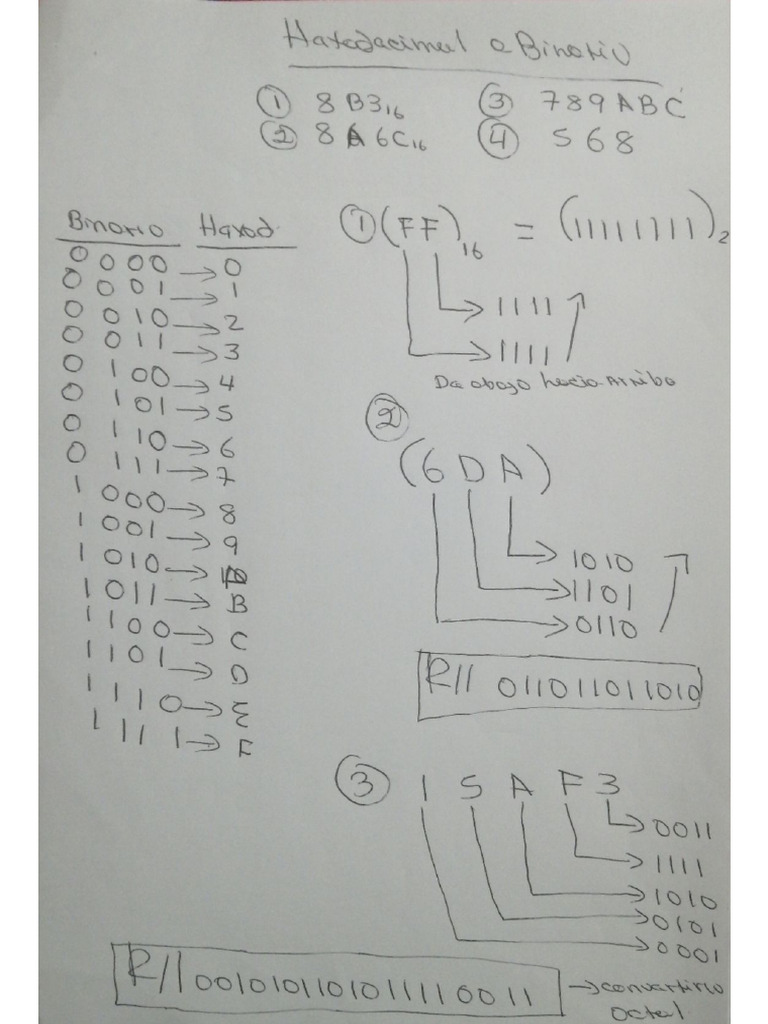 Haxadacimal a Binario
① 8B3₁₆ ③ 789ABC
② 8A6C₁₆ ④ 568
Binario Haxad
0000 → 0
0001 → 1
0010 → 2
0011 → 3
0100 → 4
0101 → 5
0110 → 6
0111 → 7
1000 → 8
1001 → 9
1010 →
1011 → B
1100 → C
1101 → D
1110 → E
1111 → F
① (FF)₁₆ = (11111111)₂
→ 1111
→ 1111
Da abajo hacia Arriba
②
(6DA)
→ 1010
→ 1101
→ 0110
R// 011011011010
③ 1 5 A F 3
→ 0011
→ 1111
→ 1010
→ 0101
→ 0001
R// 00101011010111110011 → convartirlo
octal